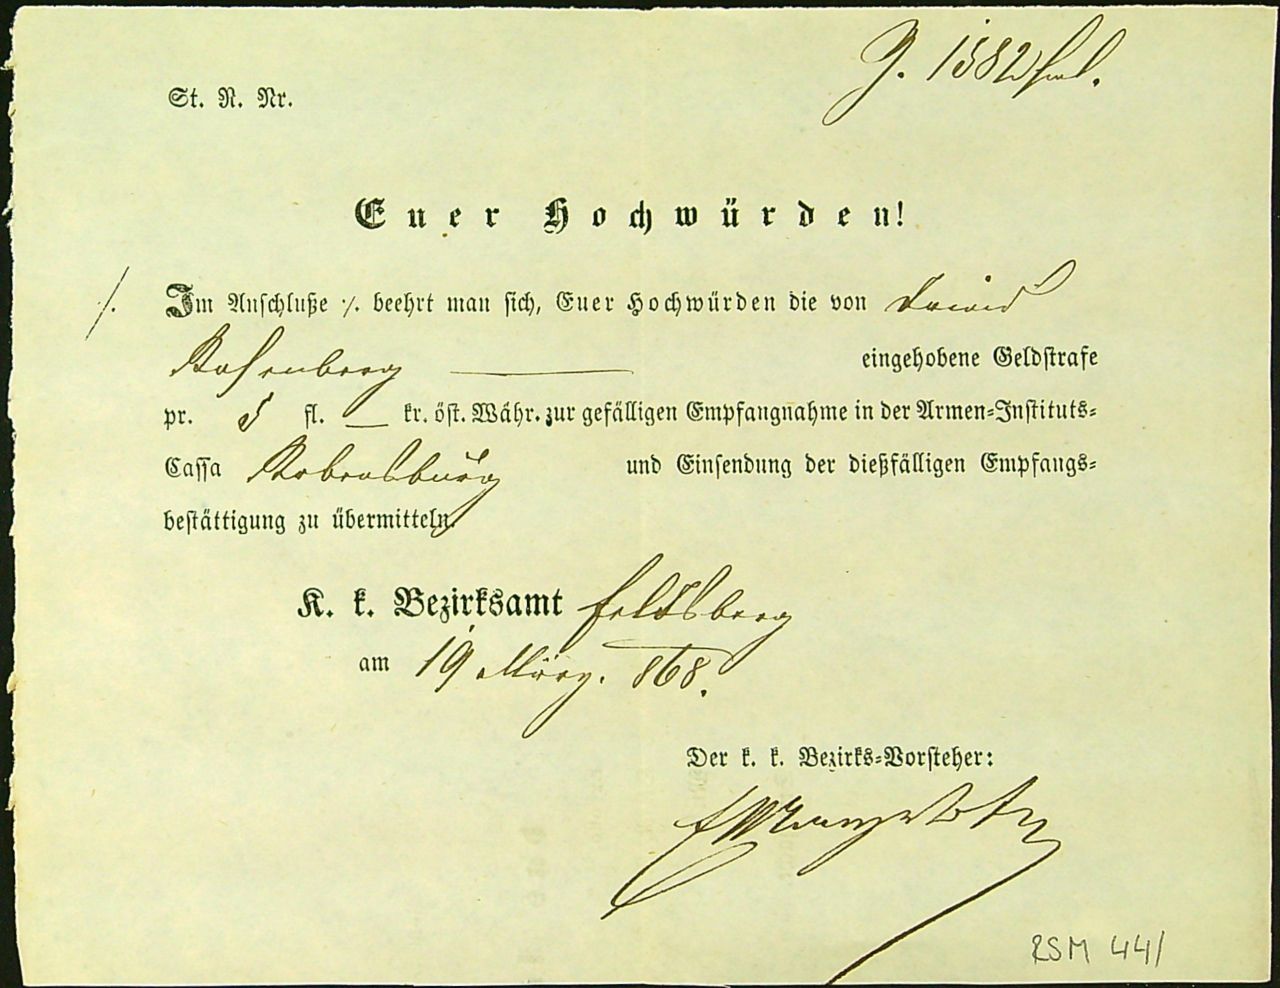 J. 1582
St. R. Nr.
Euer Hochwürden!
/. Im Anschluße ·/. beehrt man sich, Euer Hochwürden die von David
Rosenberg — eingehobene Geldstrafe
pr. 5 fl. — kr. öst. Währ. zur gefälligen Empfangnahme in der Armen-Instituts-
Cassa Rabensburg und Einsendung der dießfälligen Empfangs-
bestättigung zu übermitteln.
K. k. Bezirksamt Feldsberg
am 19 März. 868.
Der k. k. Bezirks-Vorsteher:
RSM 441